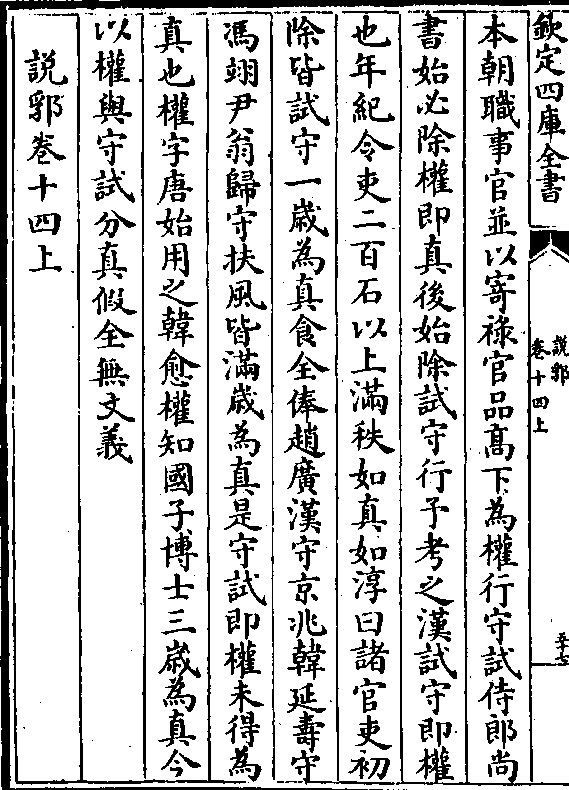 欽定四庫全書
說郛
卷十四上
五十七
本朝職事官並以寄祿官品高下為權行守試侍郎尚
書始必除權即真後始除試守行予考之漢試守即權
也年紀令吏二百石以上滿秩如真如淳曰諸官吏初
除皆試守一歲為真食全俸趙廣漢守京兆韓延壽守
馮翊尹翁歸守扶風皆滿歲為真是守試即權未得為
真也權字唐始用之韓愈權知國子博士三歲為真今
以權與守試分真假全無文義
說郛卷十四上